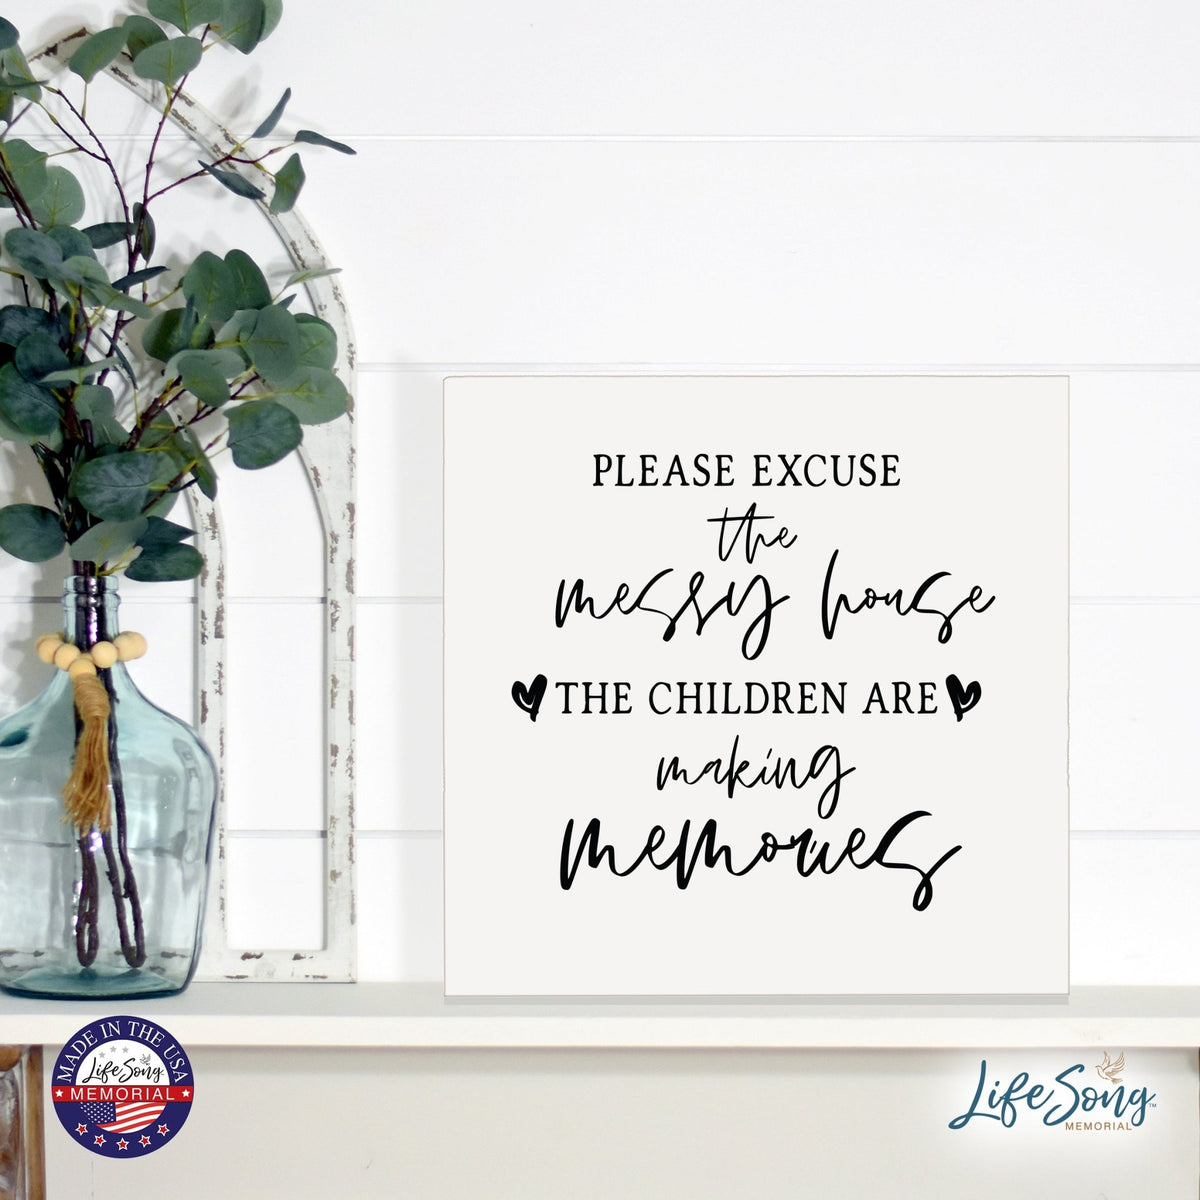 PLEASE EXCUSE
the
messy house
THE CHILDREN ARE
making
memories
MADE IN THE USA
LifeSong
MEMORIAL
LifeSong™
MEMORIAL